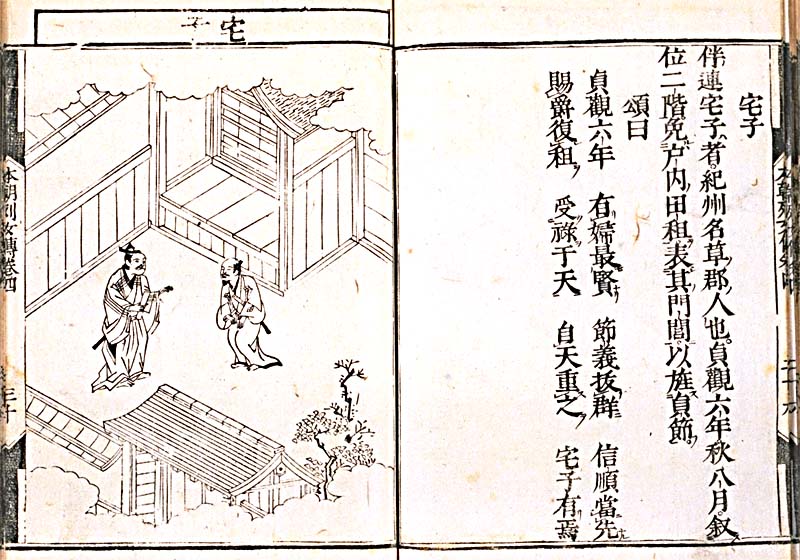 宅子
伴連宅子者紀州名草郡人也貞觀六年秋八月叙
位二階免戸内田租表其門閭以旌貞節
頌曰
貞觀六年 有婦最賢 節義抜群 信順當先
賜爵復租 受祿于天 自天重之 宅子有焉
宅子
本朝列女傳卷四